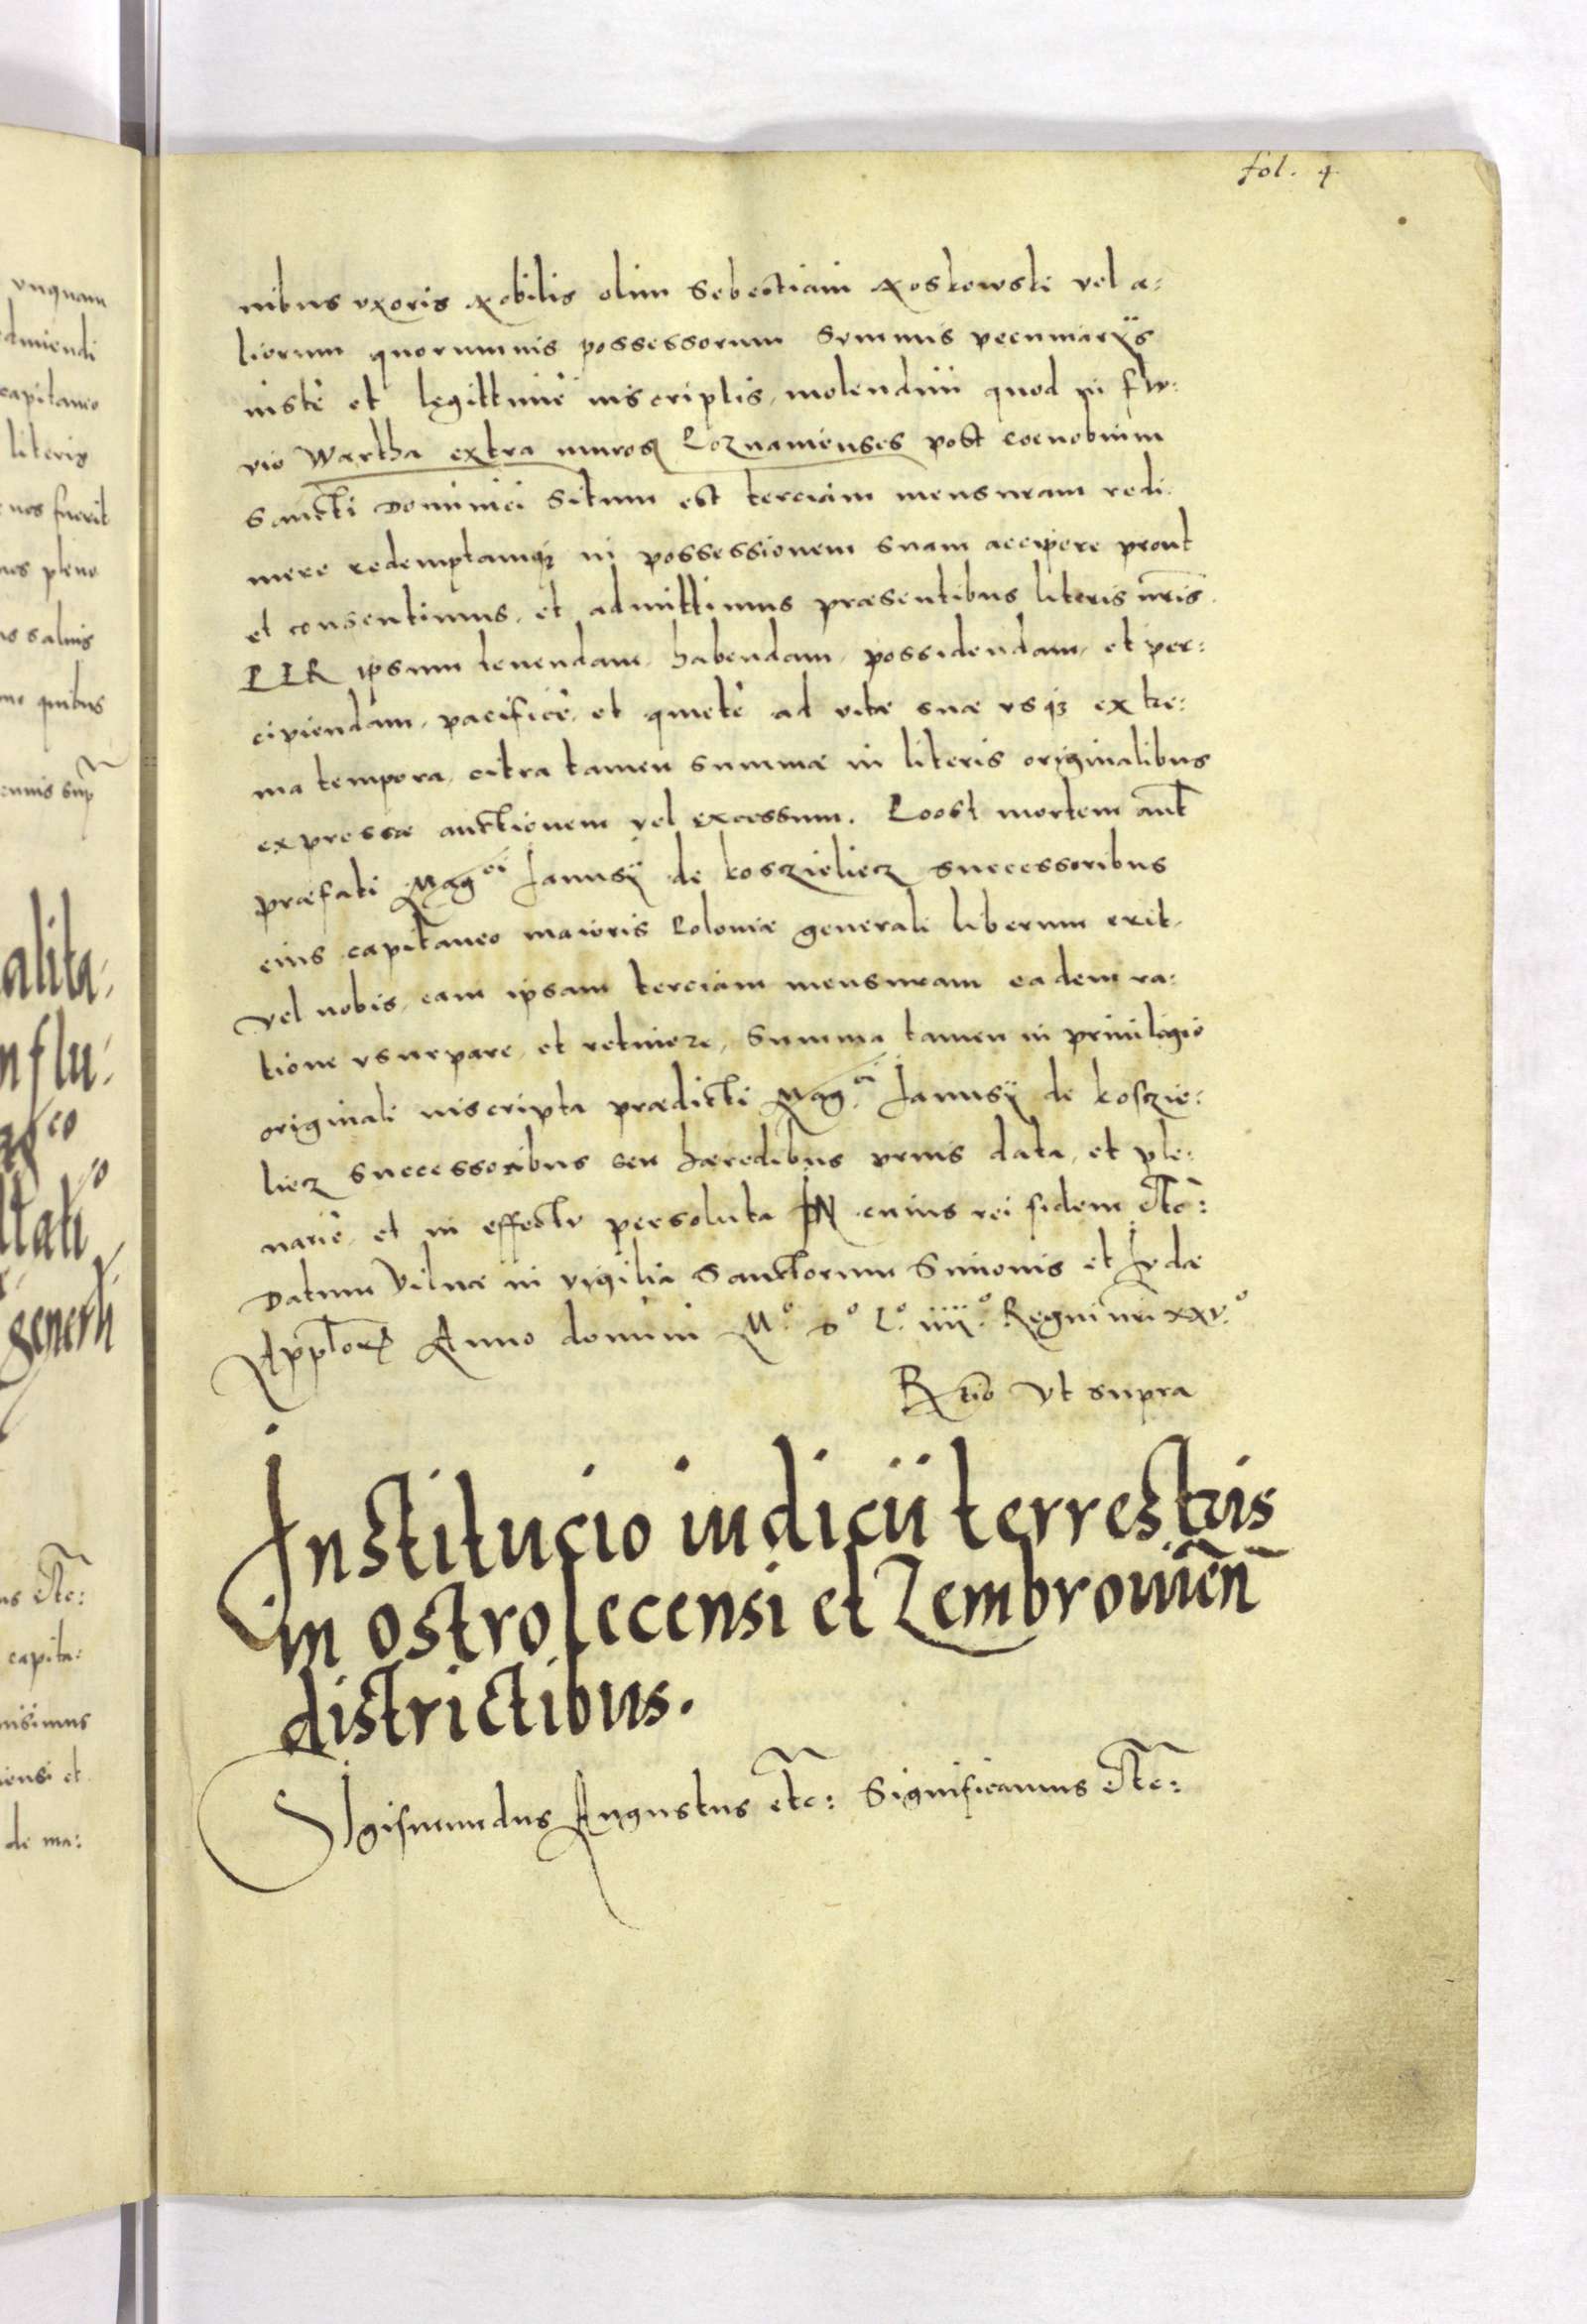 fol. 4
nibus vxoris nobilis olim Sebestiani Roskowski vel a:
liorum quorumuis possessorum Summis pecuniarijs
iuste et legittime inscriptis, molendini quod in flu:
vio Wartha extra muros Poznanienses post coenobium
Sancti Dominici Situm est terciam mensuram redi
mere redemptamq3 in possessionem suam accipere prout
et consentimus, et admittimus praesentibus literis nr̃is.
PER ipsum tenendam, habendam, possidendam, et per:
cipiendam, pacifice, et quiete ad vitae suae vsq3 extre:
ma tempora, citra tamen summae in literis originalibus
expressae auctionem vel excessum. Poost mortem aut̃
praefati Mag^ci Janusij de koszieliecz successoribus
eius capitaneo maioris Poloniae generali liberum erit,
vel nobis, eam ipsam terciam mensuram eadem ra:
tione vsurpare, et retinere, Summa tamen in priuilegio
originali inscripta praedicti Mag^ci Janusij de koszie:
liecz successoribus seu haeredibus prius data, et ple:
narie, et in effectu persoluta IN cuius rei fidem etc̃:
Datum Vilnae in vigilia Sanctorum Simonis et Judae
App̃lor̃ Anno domini M° D° L° iiii° Regni nr̃i xxv°
Rtĩo vt supra
Institucio iudicii terrestris
in ostrolecensi et Zembrouieñ
districtibus.
Sigismundus Augustus etc̃: Significamus etc̃: